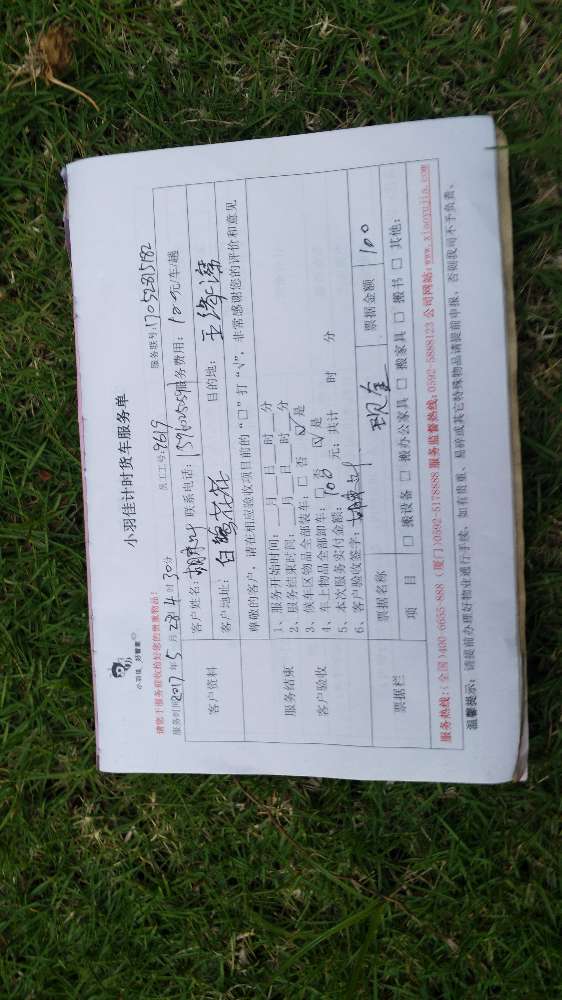 小羽佳 好管家
小羽佳计时货车服务单
请您于服务前收检好您的贵重物品!
服务时间2017年5月28日4时30分 员工工号:9619 服务联号:17052815182
客户资料
客户姓名: 联系电话: 服务费用: 100元/车/趟
客户地址:白鹭花园 目的地:
服务结束
客户验收
尊敬的客户，请在相应验收项目前的“□”打“√”，非常感谢您的评价和意见
1、服务开始时间:___月___日___时___分
2、服务结束时间:___月___日___时___分
3、候车区物品全部装车:□ 否 ☑ 是
4、车上物品全部卸车:□ 否 ☑ 是
5、本次服务实付金额: 100 元; 共计 时 分
6、客户验收签字:
票据栏
票据名称 现金 票据金额 100
项 目 □ 搬设备 □ 搬办公家具 □ 搬家具 □ 搬书 □ 其他:
服务热线:(全国)400-6655-888 (厦门)0592-5178888 服务监督热线:0592-5888123 公司网站:www.xiaoyujia.com
温馨提示: 请提前办理好物业通行手续、如有贵重、易碎或其它特殊物品请提前申报，否则我司不予负责。